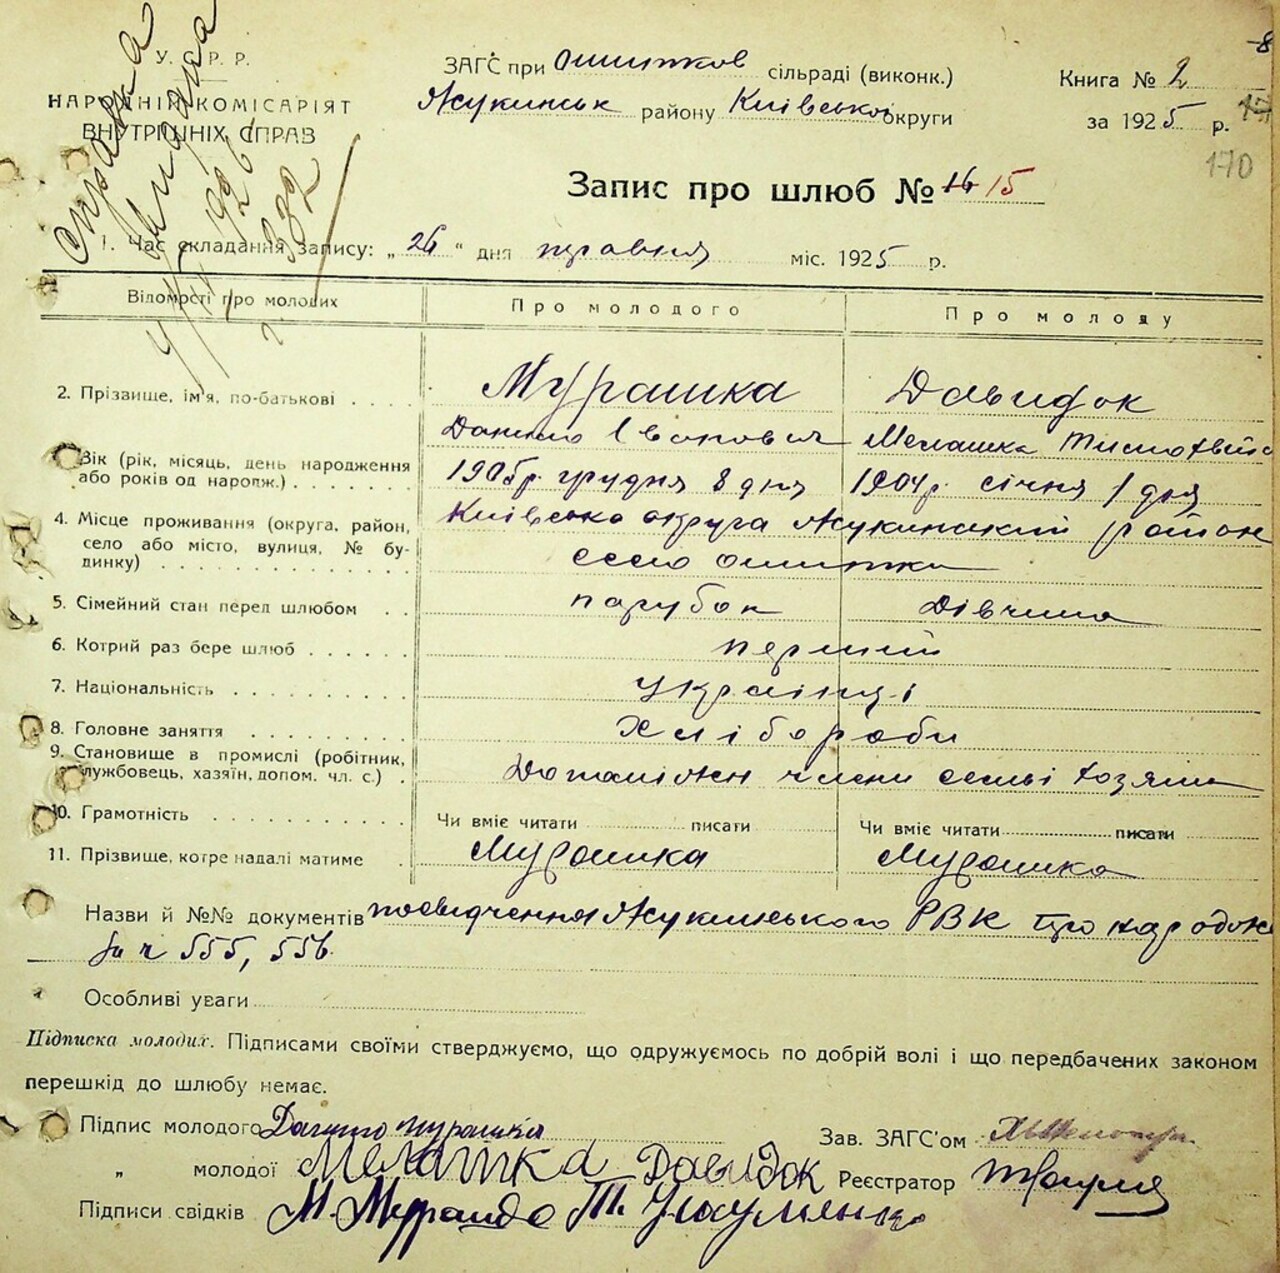 У. С. Р. Р.
НАРОДНІЙ КОМІСАРІЯТ
ВНУТРІШНІХ СПРАВ
Справка
видана
1926
332
ЗАГС при Ошитков сільраді (виконк.)
Жукинськ району Київської округи
Книга № 2
за 1925 р.
8
170
Запис про шлюб № 16 15
1. Час складання запису: „26“ дня травня міс. 1925 р.
Відомості про молодих Про молодого Про молоду
2. Прізвище, ім'я, по-батькові . . . . Мурашка Давидок
Данило Іванович Мелашка Тимохвіїв
Вік (рік, місяць, день народження
або років од нарож.) . . . . . . . 1905р. грудня 8 дня 1904р. січня 1 дня
4. Місце проживання (округа, район, Київська округа Жукинский район
село або місто, вулиця, № бу-
динку) . . . . . . . . . . . . . . село ошитки
5. Сімейний стан перед шлюбом . . парубок Дівчина
6. Котрий раз бере шлюб . . . . . . перший
7. Національність . . . . . . . . . . українці
8. Головне заняття . . . . . . . . . Хлібороби
9. Становище в промислі (робітник,
службовець, хазяїн, допом. чл. с.) . члени семьі хозяина
10. Грамотність . . . . . . . . . . . Чи вміє читати писати Чи вміє читати писати
11. Прізвище, котре надалі матиме . Мурашка Мурашка
Назви й №№ документів посвідчення Жукинського РВК про народж
за ч 555, 556.
Особливі уваги
Підписка молодих. Підписами своїми стверджуємо, що одружуємось по добрій волі і що передбачених законом
перешкід до шлюбу немає.
Підпис молодого Данило мурашка Зав. ЗАГС'ом
„ молодої Мелашка Давидок Реєстратор
Підписи свідків М. Т. Науменко